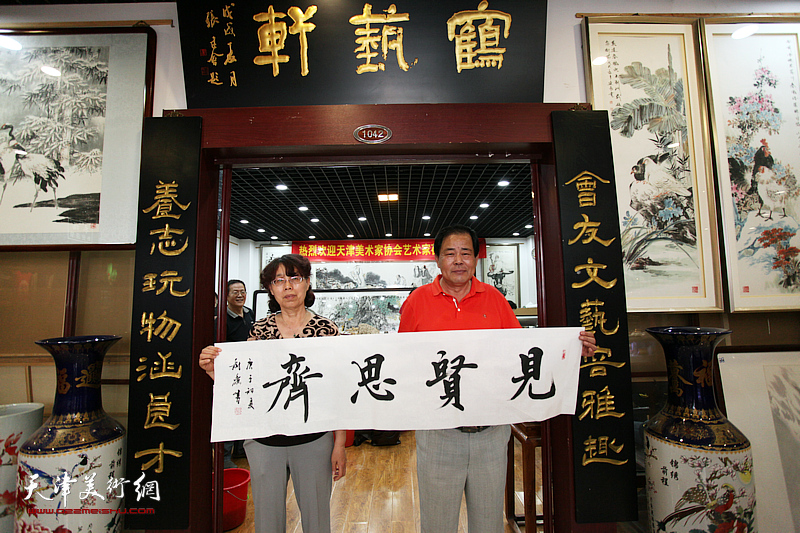 鶴藝軒
戊戌夏月
1042
會友文藝容雅趣
養志玩物涵良才
热烈欢迎天津美术家协会艺术家
見賢思齊
庚子初夏
錦繡
前程
天津美術網
www.022meishu.com